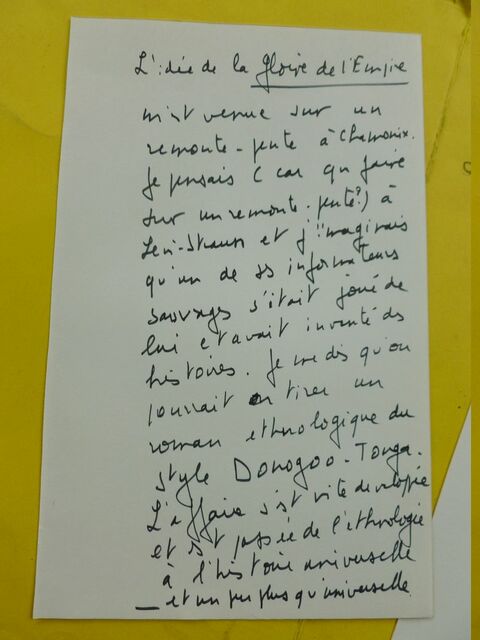 L'idée de la Gloire de l'Empire
m'est venue sur un
remonte-pente à Chamonix.
Je pensais (car que faire
sur un remonte-pente?) à
Levi-Strauss et j'imaginais
qu'un de ses informateurs
sauvages s'était joué de
lui et avait inventé des
histoires. Je me dis qu'on
pourrait en tirer un
roman ethnologique du
style Donogoo-Tonga.
L'affaire s'est vite développée
et est passée de l'ethnologie
à l'histoire universelle
— et un peu plus qu'universelle.